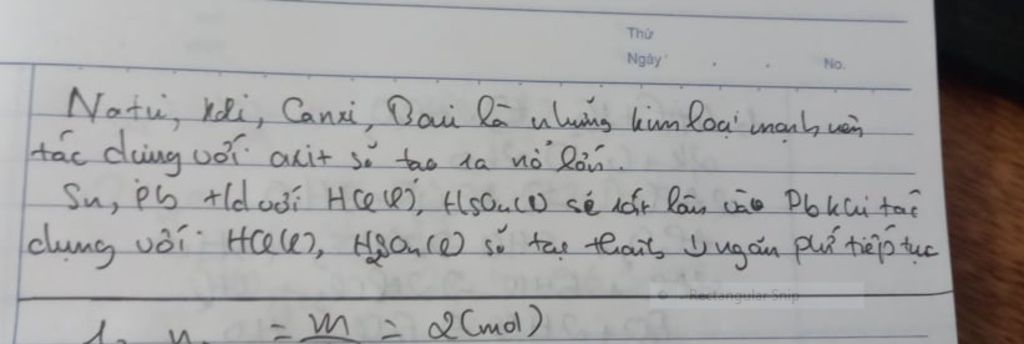 Thứ
Ngày
No.
Natri, kali, Canxi, Bari là những kim loại mạnh nên
tác dụng với axit sẽ tạo ra nổ lớn.
Sn, Pb + td với HCl(l), H2SO4(l) sẽ rất lâu Pb khi tác
dụng với HCl(l), H2SO4(l) sẽ tạo thành ↓ ngăn pứ tiếp tục
Rectangular Snip
= m = 2(mol)